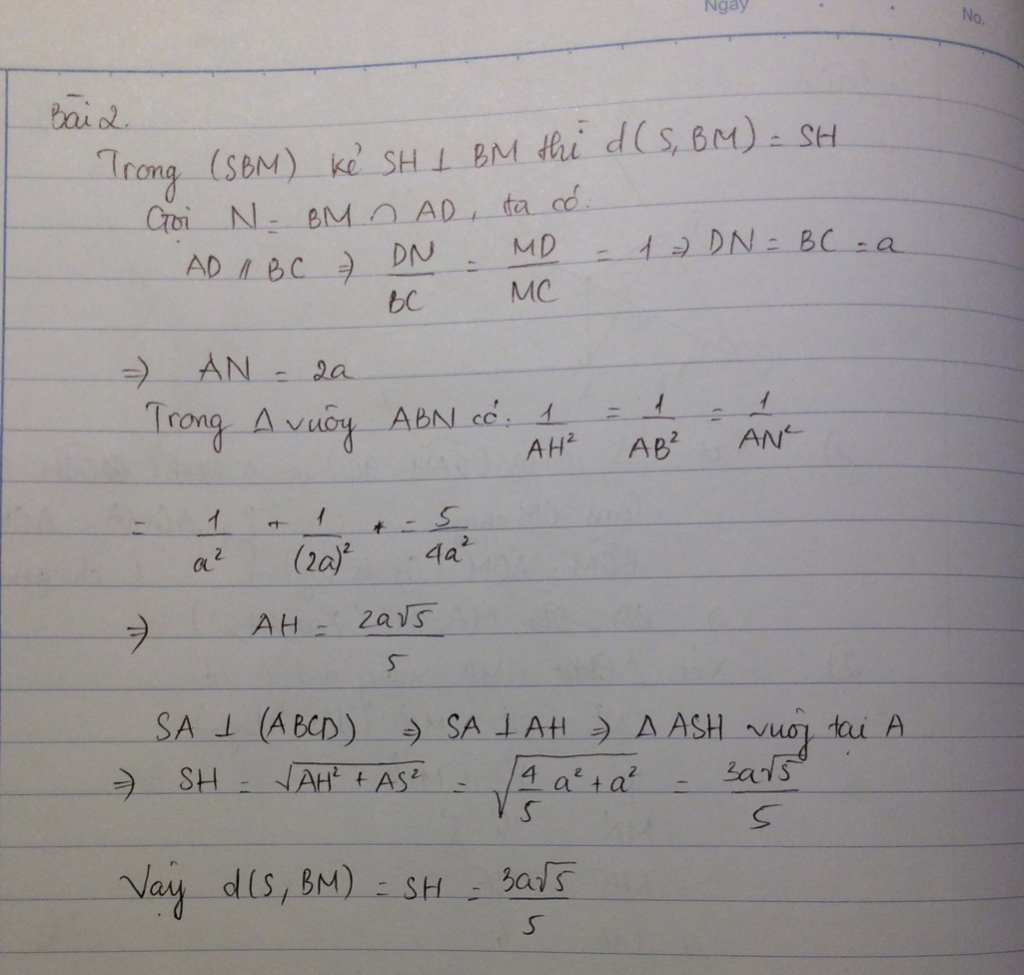 Ngày
No.
Bài 2.
Trong (SBM) kẻ SH ⊥ BM thì d(S, BM) = SH
Gọi N = BM ∩ AD, ta có.
AD // BC ⇒ DN/BC = MD/MC = 1 ⇒ DN = BC = a
⇒ AN = 2a
Trong Δ vuông ABN có: 1/AH² = 1/AB² = 1/AN²
= 1/a² + 1/(2a)² = 5/4a²
⇒ AH = 2a√5/5
SA ⊥ (ABCD) ⇒ SA ⊥ AH ⇒ Δ ASH vuông tại A
⇒ SH = √(AH² + AS²) = √(4/5 a² + a²) = 3a√5/5
Vậy d(S, BM) = SH = 3a√5/5